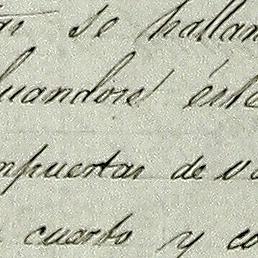 se hallan
uandose esta
mpuertas de va
cuarto y co